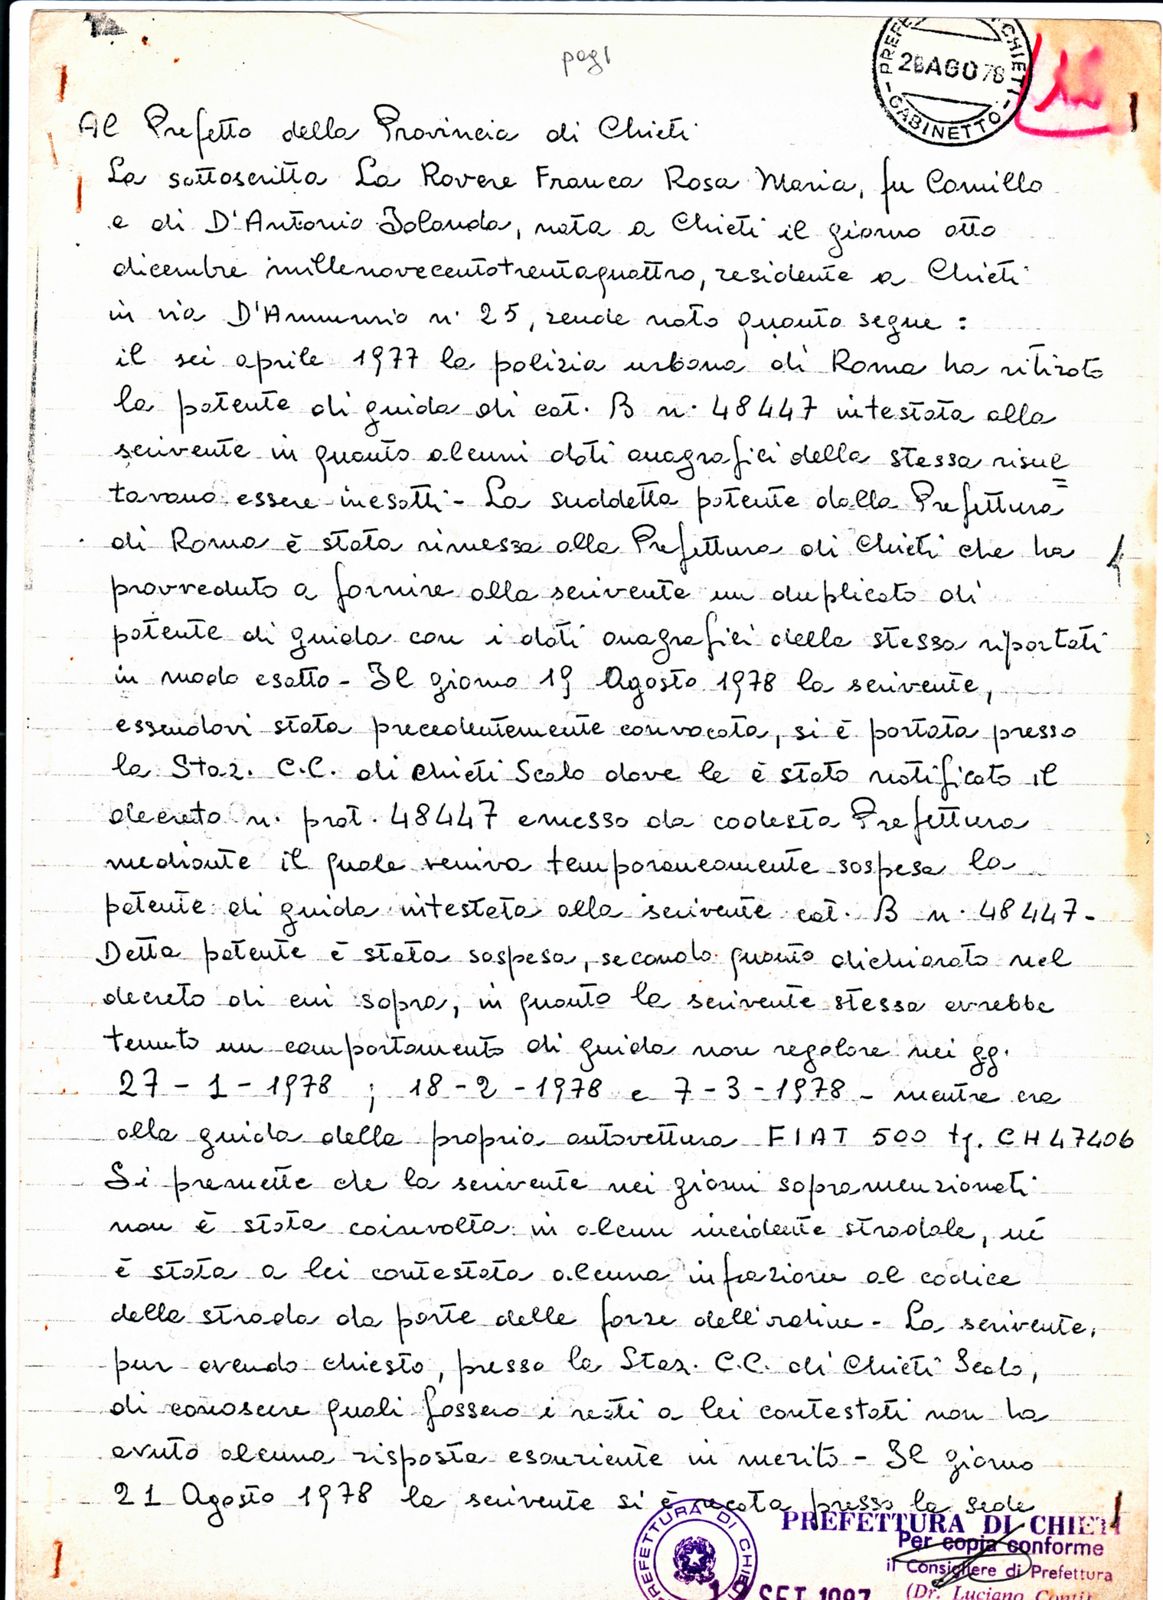 pag 1
PREFETTURA DI CHIETI
28 AGO 78
- GABINETTO -
Al Prefetto della Provincia di Chieti
La sottoscritta La Rovere Franca Rosa Maria, fu Camillo
e di D'Antonio Iolanda, nata a Chieti il giorno otto
dicembre millenovecentotrentaquattro, residente a Chieti
in via D'Annunzio n. 25, rende noto quanto segue:
il sei aprile 1977 la polizia urbana di Roma ha ritirato
la patente di guida di cat. B n. 48447 intestata alla
scrivente in quanto alcuni dati anagrafici della stessa risul=
tavano essere inesatti - La suddetta patente dalla Prefettura
di Roma è stata rimessa alla Prefettura di Chieti che ha
provveduto a fornire alla scrivente un duplicato di
patente di guida con i dati anagrafici della stessa riportati
in modo esatto - Il giorno 19 Agosto 1978 la scrivente,
essendovi stata precedentemente convocata, si è portata presso
la Staz. C.C. di Chieti Scalo dove le è stato notificato il
decreto n. prot. 48447 emesso da codesta Prefettura
mediante il quale veniva temporaneamente sospesa la
patente di guida intestata alla scrivente cat. B n. 48447 -
Detta patente è stata sospesa, secondo quanto dichiarato nel
decreto di cui sopra, in quanto la scrivente stessa avrebbe
tenuto un comportamento di guida non regolare nei gg.
27 - 1 - 1978 ; 18 - 2 - 1978 e 7 - 3 - 1978 - mentre era
alla guida della propria autovettura FIAT 500 tg. CH 47406
Si premette che la scrivente nei giorni sopramenzionati
non è stata coinvolta in alcun incidente stradale, né
è stata a lei contestata alcuna infrazione al codice
della strada da parte delle forze dell'ordine - La scrivente,
pur avendo chiesto, presso la Staz. C.C. di Chieti Scalo,
di conoscere quali fossero i reati a lei contestati non ha
avuto alcuna risposta esauriente in merito - Il giorno
21 Agosto 1978 la scrivente si è recata presso la sede
PREFETTURA DI CHIETI
PREFETTURA DI CHIETI
Per copia conforme
il Consigliere di Prefettura
SET. 1987
(Dr. Luciano Conti)